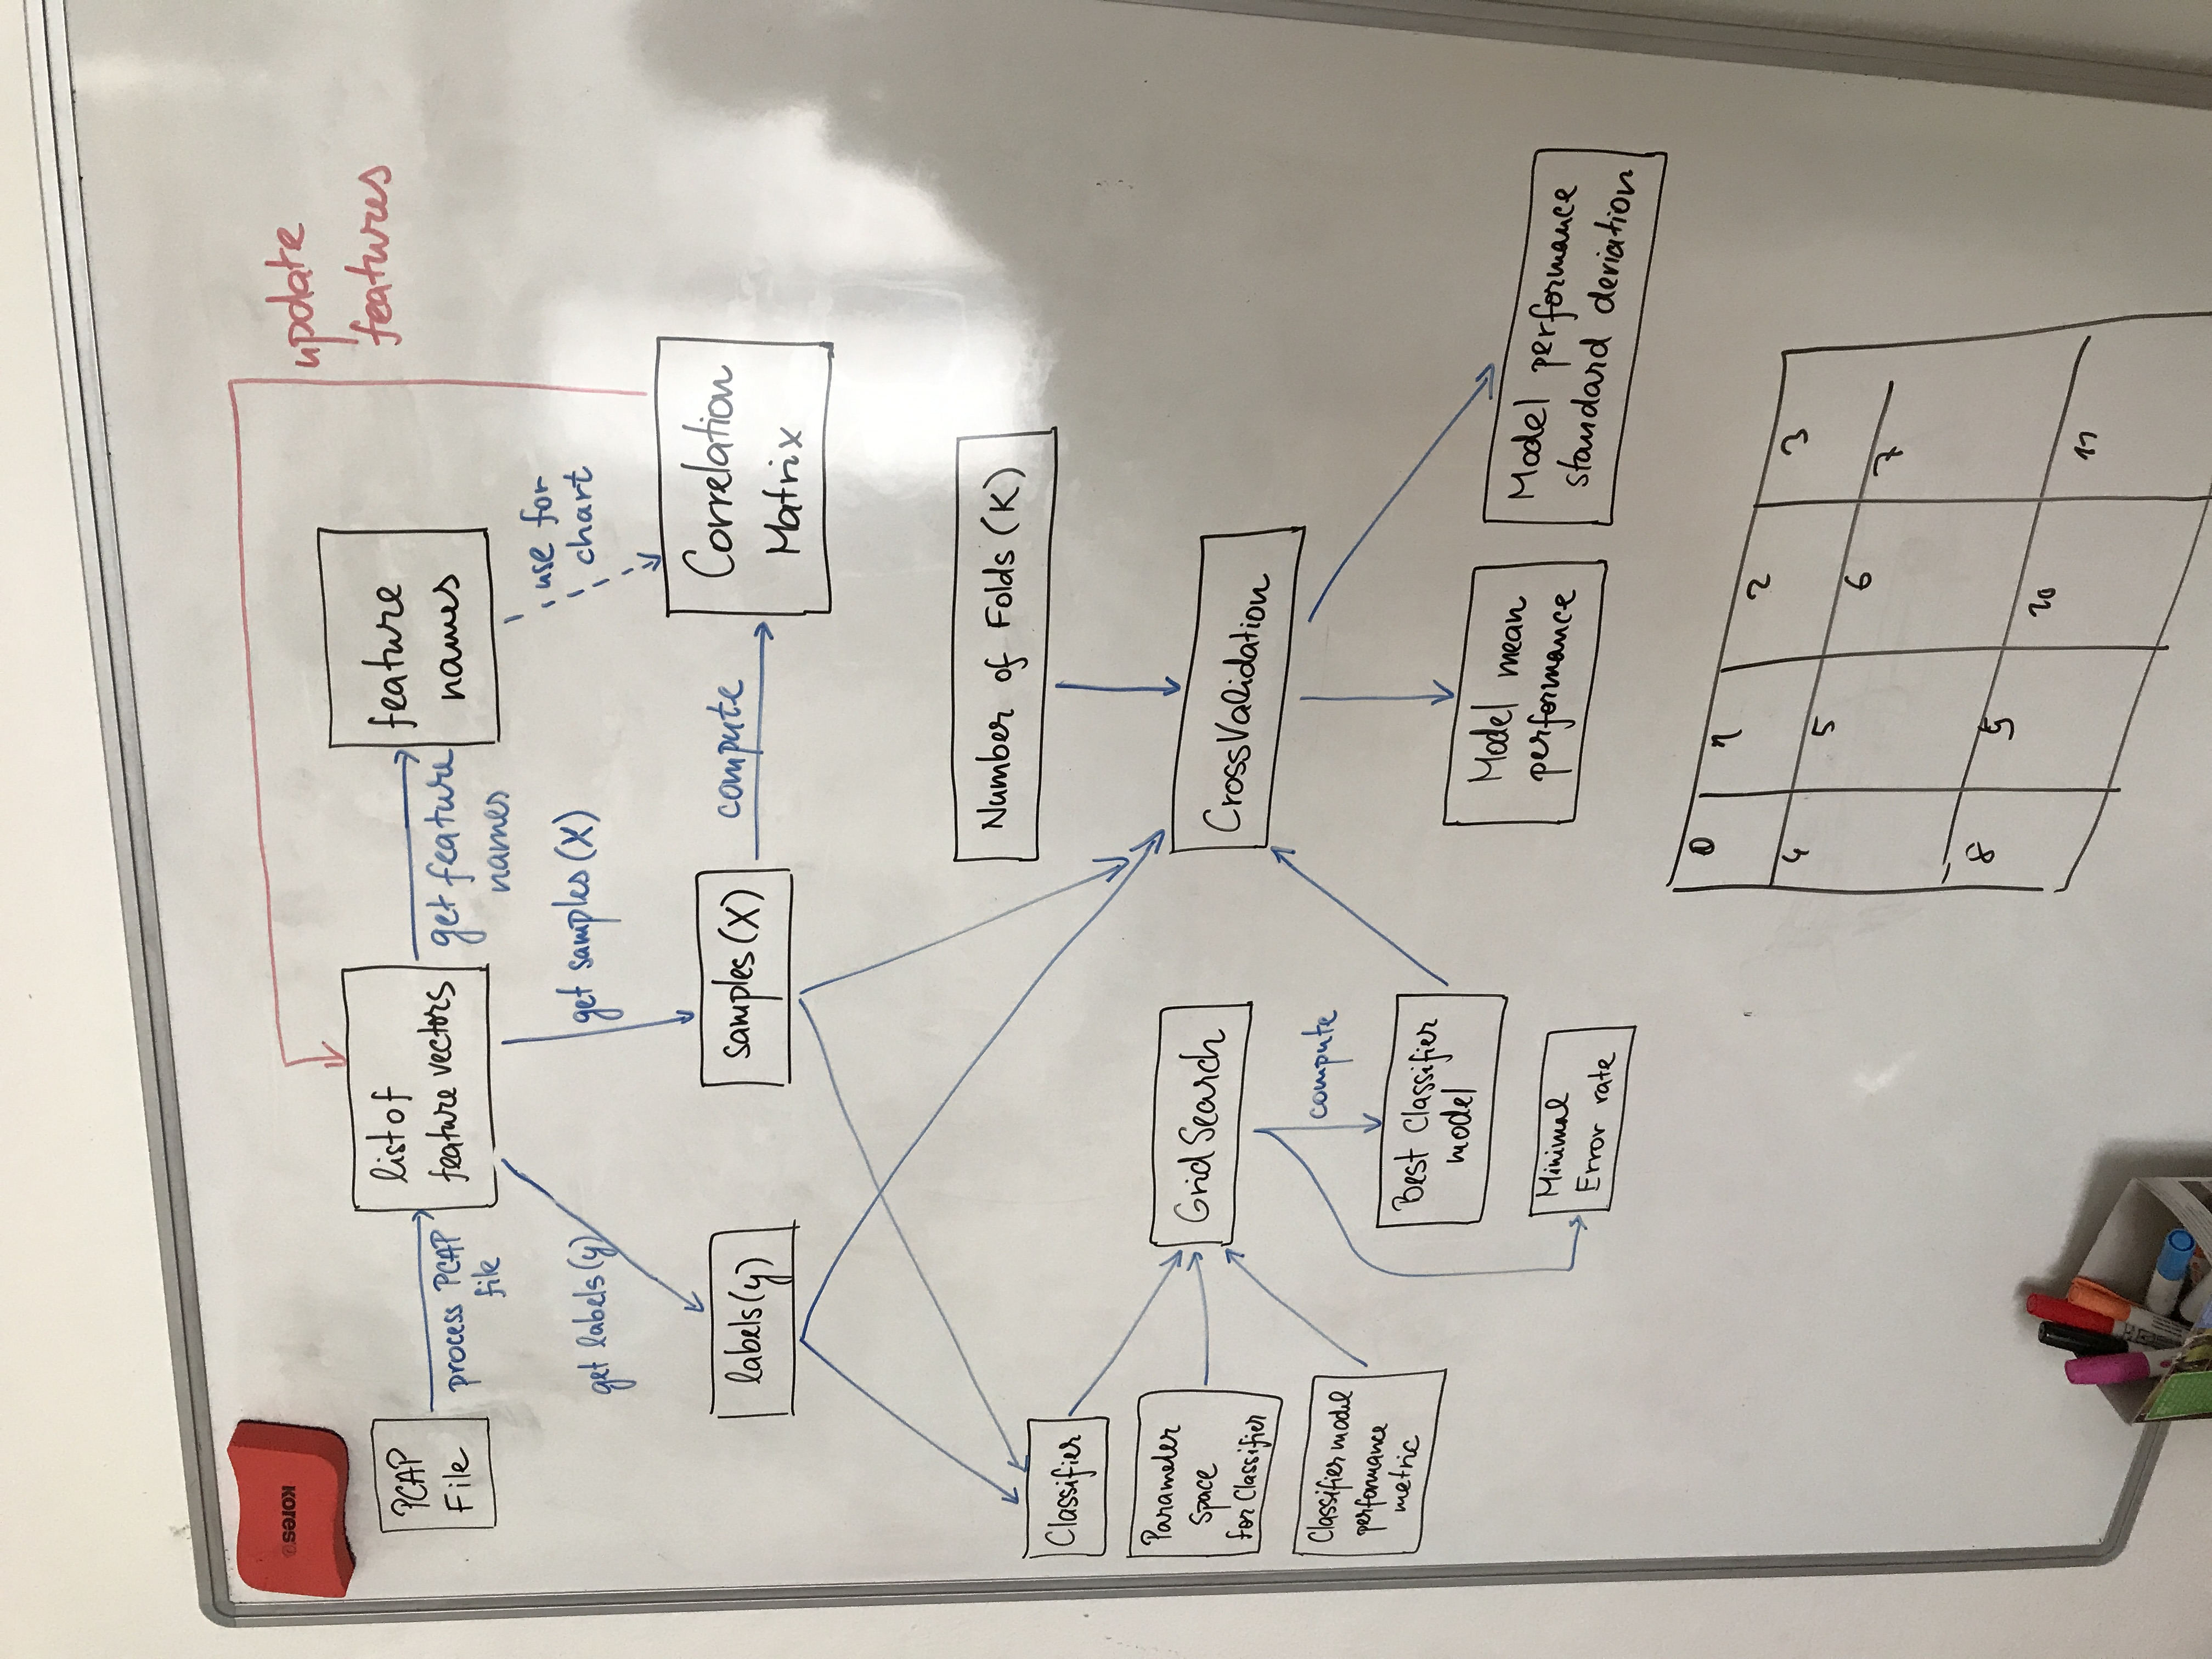 Kores
update
features
PCAP
File
process PCAP
file
list of
feature vectors
get feature
names
feature
names
use for
chart
get labels(y)
get samples (X)
labels(y)
samples (X)
compute
Correlation
Matrix
Number of Folds (K)
Classifier
Parameter
Space
for Classifier
Classifier model
performance
metric
Grid Search
compute
CrossValidation
Best Classifier
model
Minimal
Error rate
Model mean
performance
Model performance
standard deviation
0 1 2 3
4 5 6 7
8 9 10 11